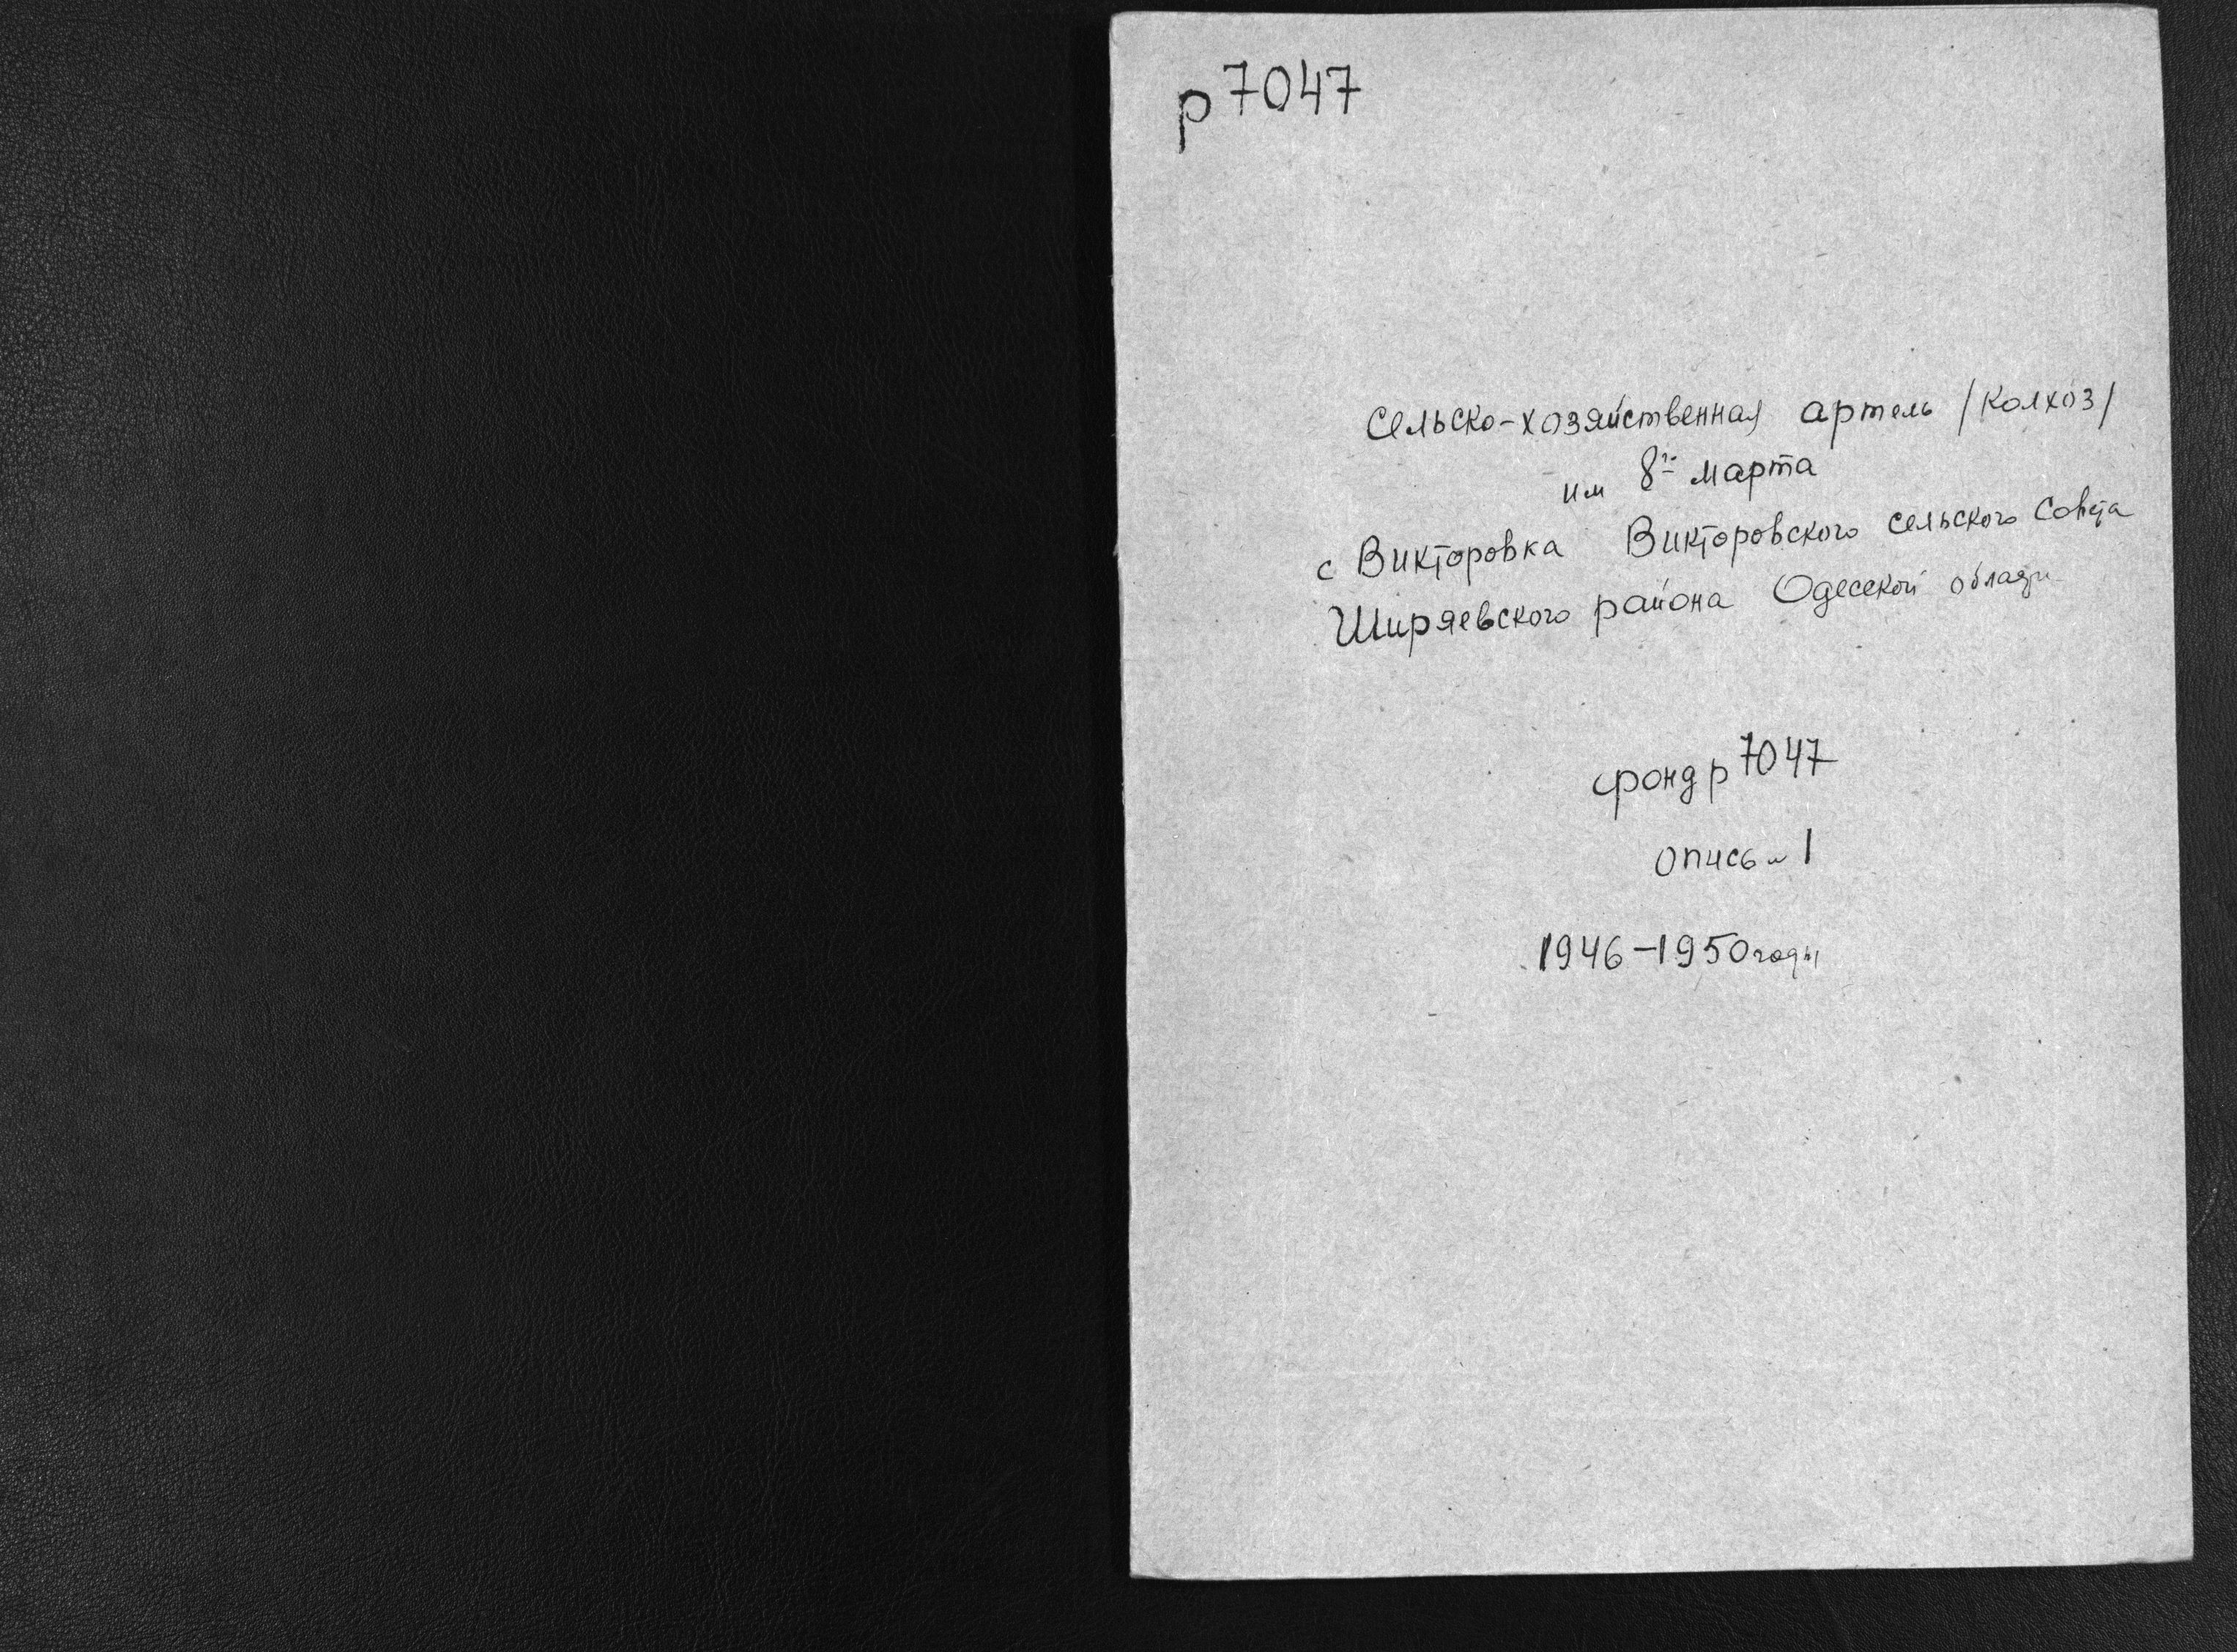 р7047
Сельско-хозяйственная артель /колхоз/
им 8го марта
с Викторовка Викторовского сельского Совета
Ширяевского района Одесской области
фонд р7047
опись 1
1946-1950 годы